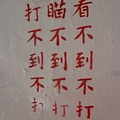 看不到不打
瞄不到不打
打不到不打